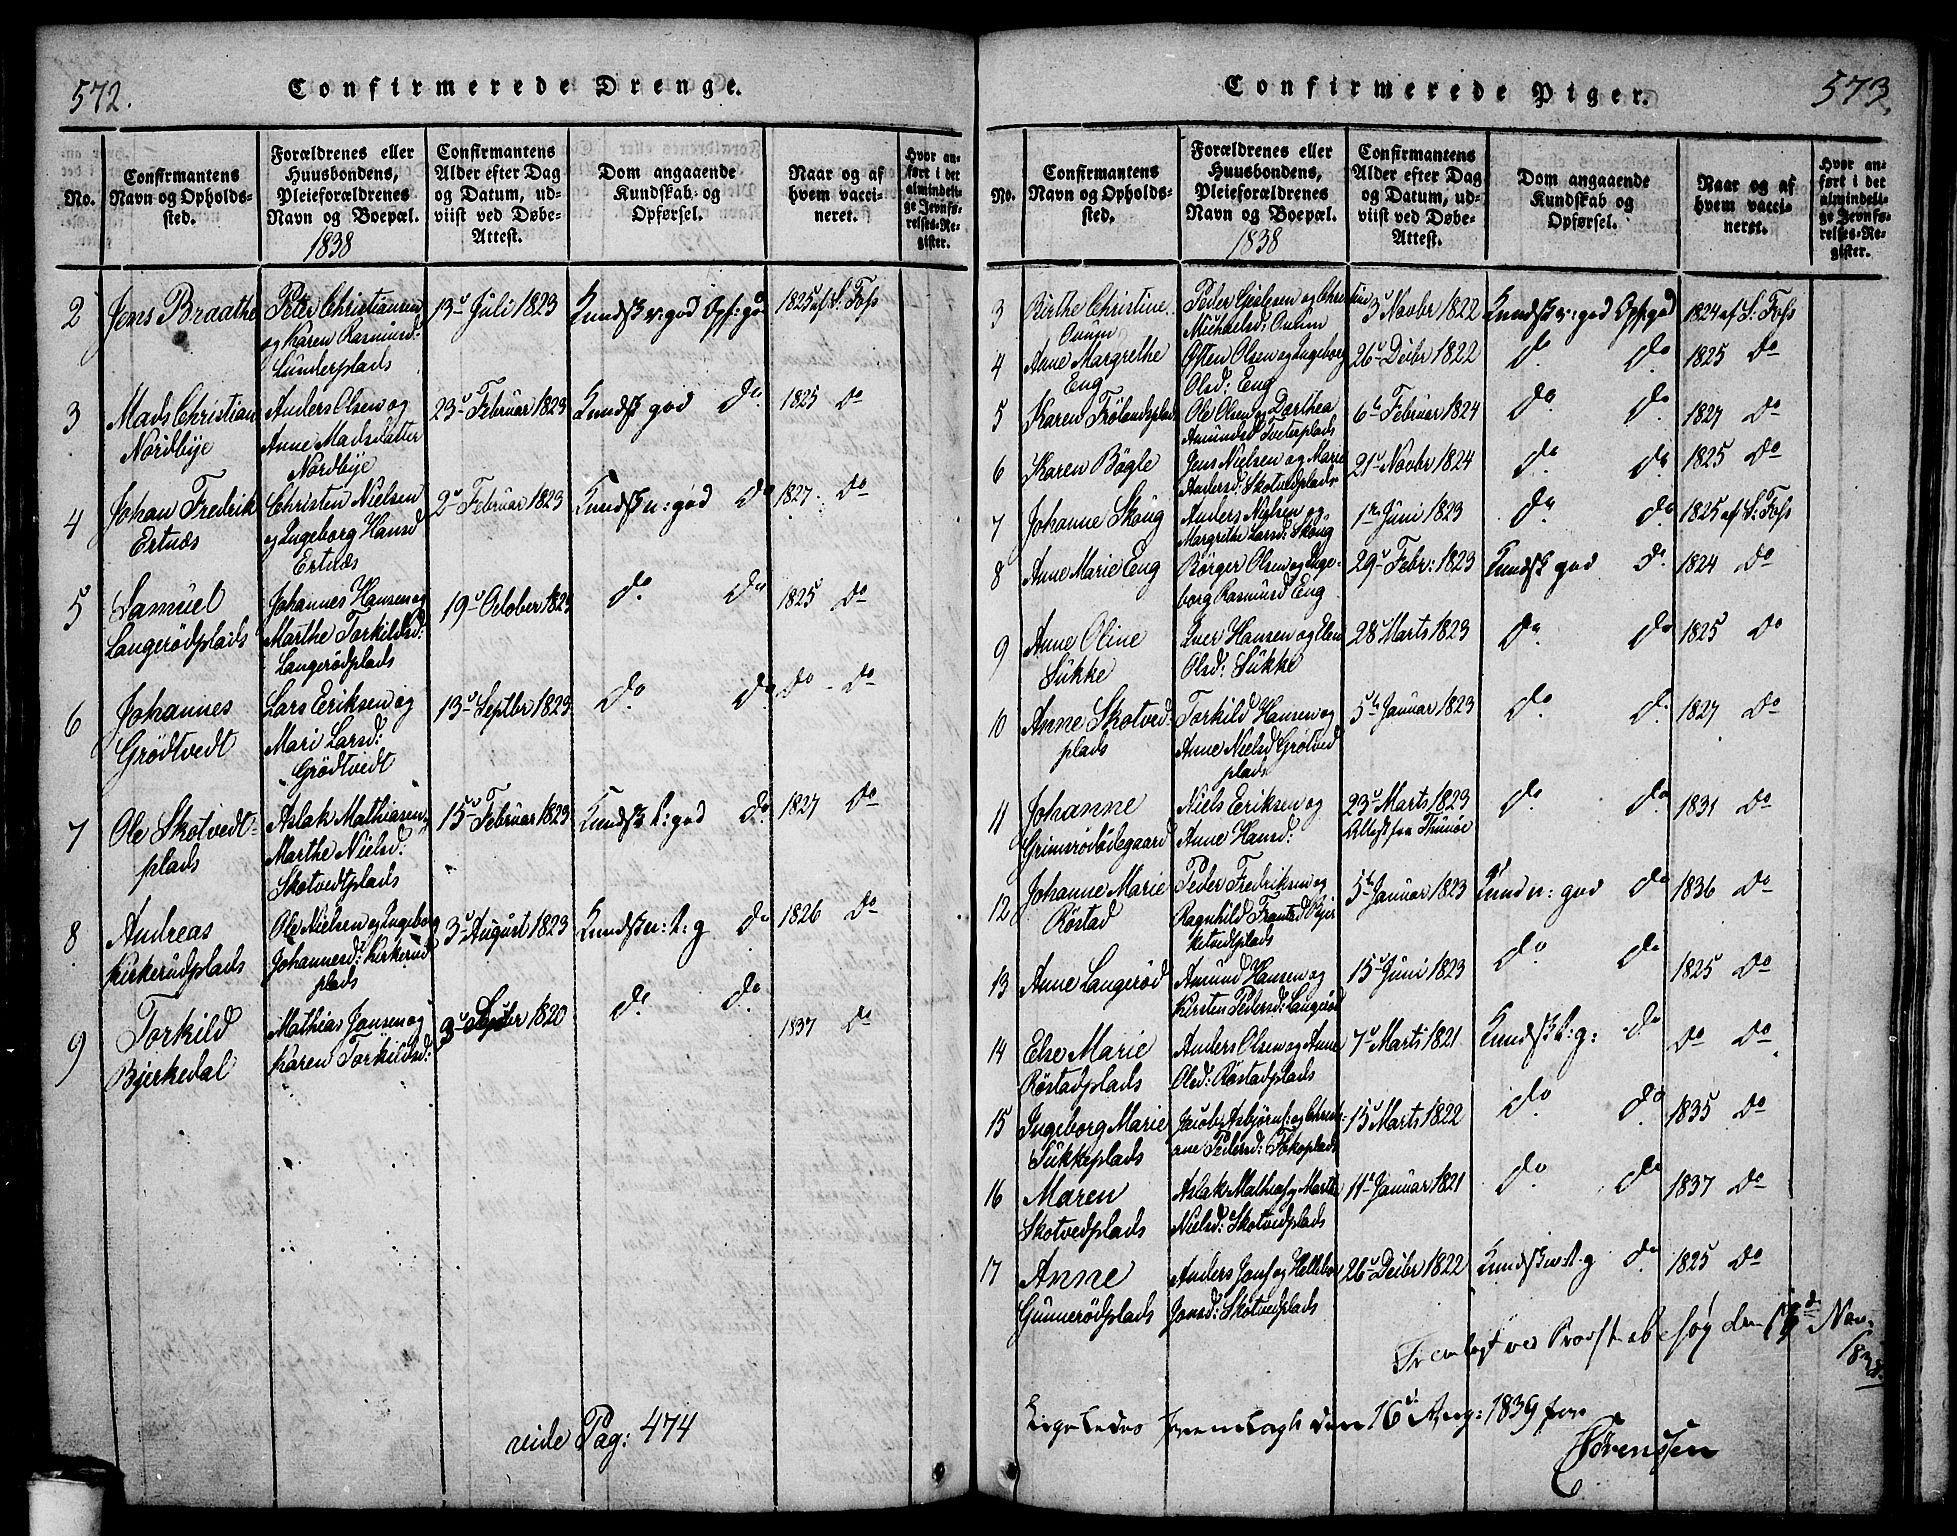 572.
Confirmerede Drenge.
No.
Confirmantens
Navn og Opholds-
sted.
Forældrenes eller
Huusbondens,
Pleieforældrenes
Navn og Boepæl.
1838
Confirmantens
Alder efter Dag
og Datum, ud-
viist ved Døbe-
Attest.
Dom angaaende
Kundskab og
Opførsel.
Naar og af
hvem vacci-
neret.
Hvor an-
ført i det
almindeli-
ge Jevnfø-
relses-Re-
gister.
2 Jens Braathe
Peter Christiansen
og Karen Rasmusd:
Lunderplads
13 Juli 1823
Kundsk v: god Opf: god
1825 af S. Foss
3 Mads Christian
Nordbye
Anders Olsen og
Anne Madsdatter
Nordbye
23 Februar 1823
Kundsk god do
1825 do
4 Johan Fredrik
Ertnæs
Christen Nielsen
og Ingeborg Hansd
Ertnæs
2 Februar 1823
Kundsk n: god do
1827 do
5 Samuel
Langerødplads
Johannes Hansen og
Marthe Torkildsd:
Langerødplads
19 October 1823
do do
1825 do
6 Johannes
Grödtvedt
Lars Eriksen og
Mari Larsd:
Grödtvedt
13 Septbr 1823
do do
do do
7 Ole Skotvedt-
plads
Aslak Mathiasen
Marthe Nielsd:
Skotvedtplads
15 Februar 1823
Kundsk t: god do
1827 do
8 Andreas
Kirkerudplads
Ole Nielsen og Ingeborg
Johannesd: Kirkerud
plads
3 August 1823
Kundsk n: t: g do
1826 do
9 Torkild
Bjerkedal
Mathias Jansen og
Karen Torkildsd:
1820
do do
1837 do
vide Pag: 474
573.
Confirmerede Piger.
No.
Confirmantens
Navn og Opholds-
sted.
Forældrenes eller
Huusbondens,
Pleieforældrenes
Navn og Boepæl.
1838
Confirmantens
Alder efter Dag
og Datum, ud-
viist ved Døbe-
Attest.
Dom angaaende
Kundskab og
Opførsel.
Naar og af
hvem vacci-
neret.
Hvor an-
ført i det
almindeli-
ge Jevnfø-
relses-Re-
gister.
3 Birthe Christine
Onum
Peder
Michaelsd: Onum
3 Novbr 1822
Kundsk v: god Opf: god
1824 af S. Foss
4 Anne Margrethe
Eng
Østen Olsen og Ingeborg
Olsd: Eng
26 Decbr 1822
do do
1825 do
5 Karen Trölandsplad
Ole Olsen og Dorthea
Amundsd Tveterplads
6 Februar 1824
do do
1827 do
6 Karen Bögle
Jens Nielsen og Marie
Andersd: Skotvedplads
21 Novbr 1824
do do
1825 do
7 Johanne Skoug
Anders Nielsen og
Margrethe Larsd: Skoug
1 Juni 1823
do do
1825 af S: Foss
8 Anne Marie Eng
Börger Olsen og Inge-
borg Rasmusd Eng
29 Febr: 1823
Kundsk god do
1824 do
9 Anne Oline
Sukke
Iver Hansen og Elen
Olsd: Sukke
28 Marts 1823
do do
1825 do
10 Anne Skotved-
plads
Torkild Hansen og
Anne Nielsd Grötved
plads
5 Januar 1823
do do
1827 do
11 Johanne
Grimsrödödegaard
Niels Eriksen og
Anne Hansd:
23 Marts 1823
Attest fra Thunöe
do do
1831 do
12 Johanne Marie
Röstad
Peder Fredriksen og
Ragnhild Frantsd
5 Januar 1823
Kund n: god do
1836 do
13 Anne Langeröd
Amund Hansen og
Kirsten Pedersd: Langeröd
15 Juni 1823
do do
1825 do
14 Else Marie
Röstadplads
Anders Olsen og Anne
Olsd: Röstadplads
7 Marts 1821
Kundsk t: g: do
do do
15 Ingeborg Marie
Sukkeplads
Jacob Asbjörns: og Christi-
ane Pedersd: Tokoplads
15 Marts 1822
do do
1835 do
16 Maren
Skotvedplads
Aslak Mathias og Marthe
Nielsd: Skotvedplads
11 Januar 1821
do do
1837 do
17 Anne
Gunnerödplads
Anders Jons: og Helleborg
Jonsd: Skotvedplads
26 Decbr 1822
Kundsk n: t. g do
1825 do
Fremlagt ved Provstebesög den 13 Nov.
1838.
Ligeledes fremlagt den 16 Aug: 1839 for
Sörenssen